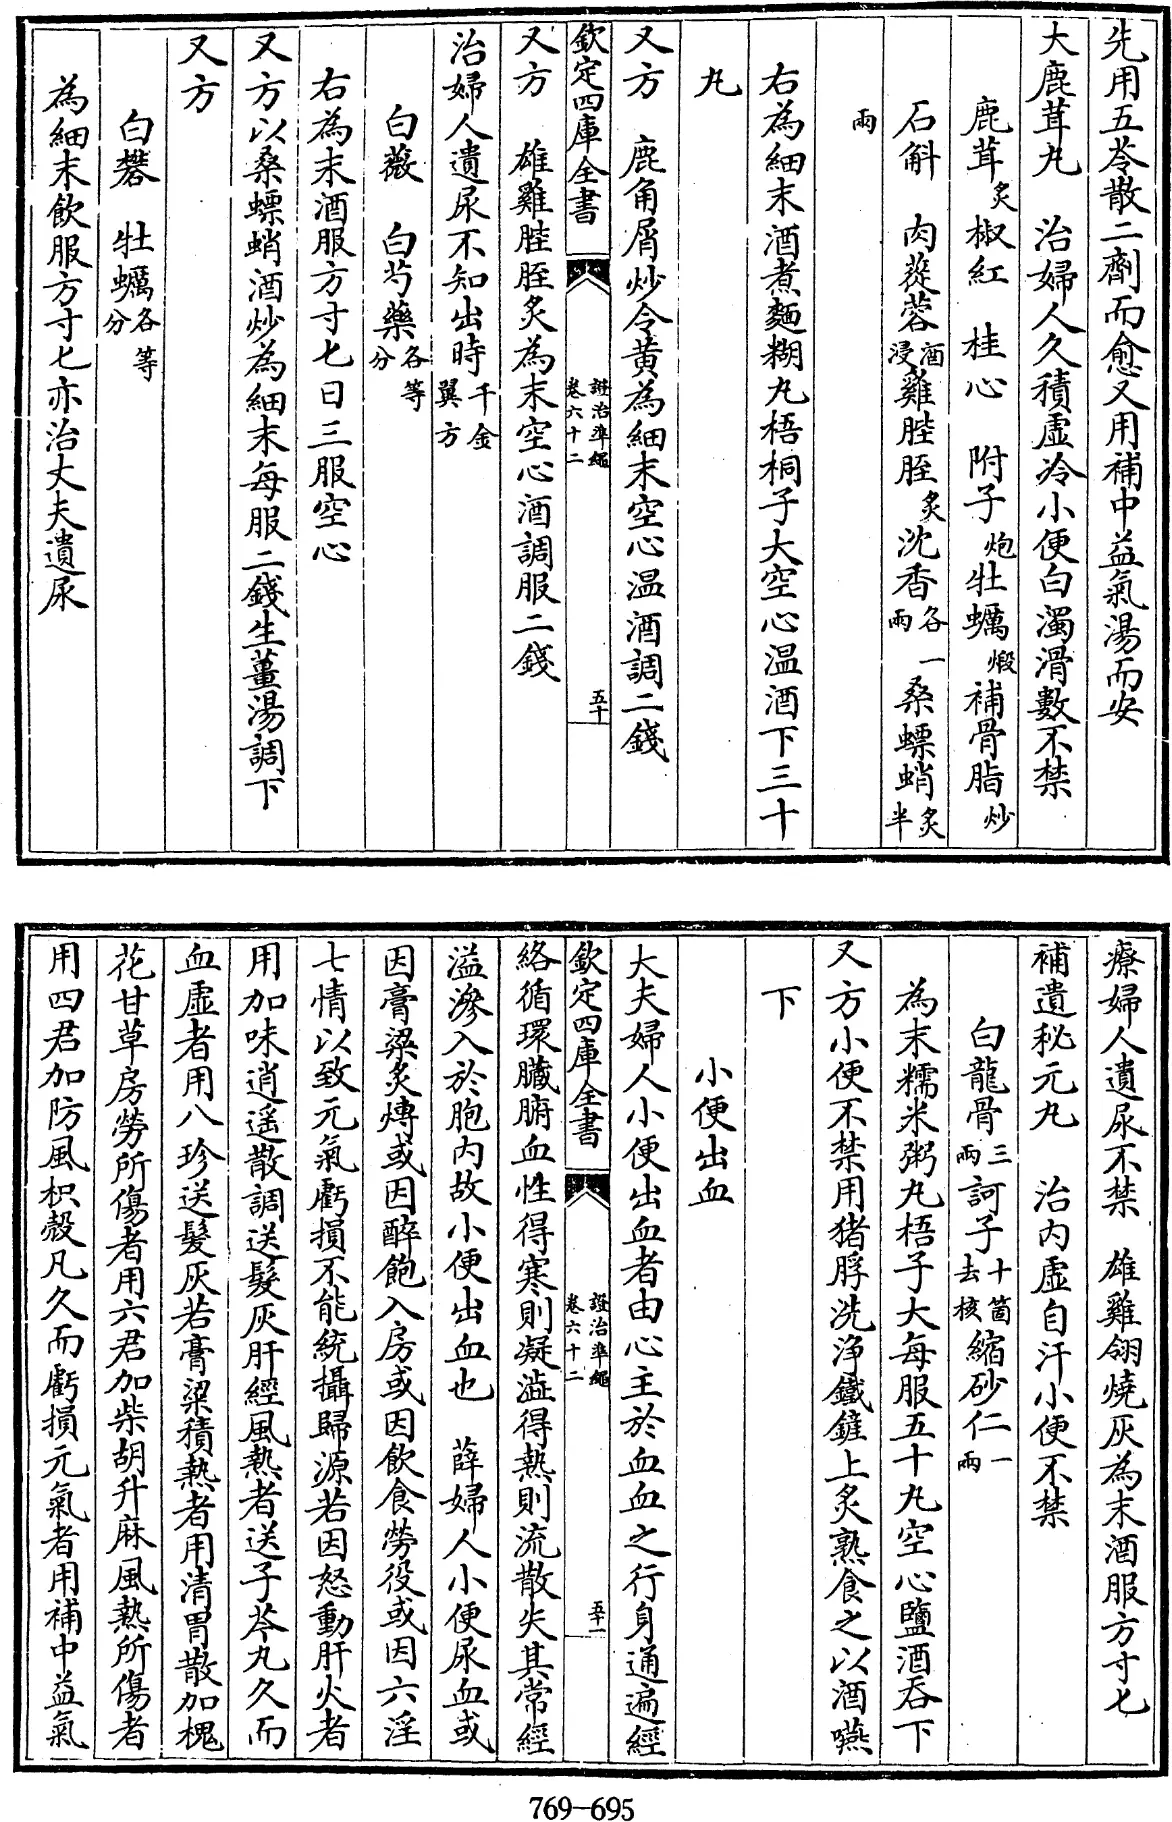 先用五苓散二劑而愈又用補中益氣湯而安
大鹿茸丸　治婦人久積虛冷小便白濁滑數不禁
鹿茸炙椒紅　桂心　附子炮牡蠣煅補骨脂炒
石斛　肉蓯蓉酒浸雞膍胵炙沈香各一兩桑螵蛸炙半
兩
右為細末酒煮麵糊丸梧桐子大空心温酒下三十
丸
又方　鹿角屑炒令黄為細末空心温酒調二錢
欽定四庫全書　證治準繩卷六十二　五十
又方　雄雞膍胵炙為末空心酒調服二錢
治婦人遺尿不知出時千金翼方
白薇　白芍藥各等分
右為末酒服方寸匕日三服空心
又方以桑螵蛸酒炒為細末每服二錢生薑湯調下
又方
白礬　牡蠣各等分
為細末飲服方寸匕亦治丈夫遺尿
療婦人遺尿不禁　雄雞翎燒灰為末酒服方寸匕
補遺秘元丸　治内虛自汗小便不禁
白龍骨三兩訶子十箇去核縮砂仁一兩
為末糯米粥丸梧子大每服五十丸空心鹽酒吞下
又方小便不禁用猪脬洗淨鐵鏟上炙熟食之以酒嚥
下
小便出血
大夫婦人小便出血者由心主於血血之行身通遍經
欽定四庫全書　證治準繩卷六十二　五十一
絡循環臟腑血性得寒則凝澁得熱則流散失其常經
溢滲入於胞内故小便出血也　薛婦人小便尿血或
因膏粱炙煿或因醉飽入房或因飲食勞役或因六淫
七情以致元氣虧損不能統攝歸源若因怒動肝火者
用加味逍遥散調送髮灰肝經風熱者送子芩丸久而
血虛者用八珍送髮灰若膏粱積熱者用清胃散加槐
花甘草房勞所傷者用六君加柴胡升麻風熱所傷者
用四君加防風枳殻凡久而虧損元氣者用補中益氣
769—695